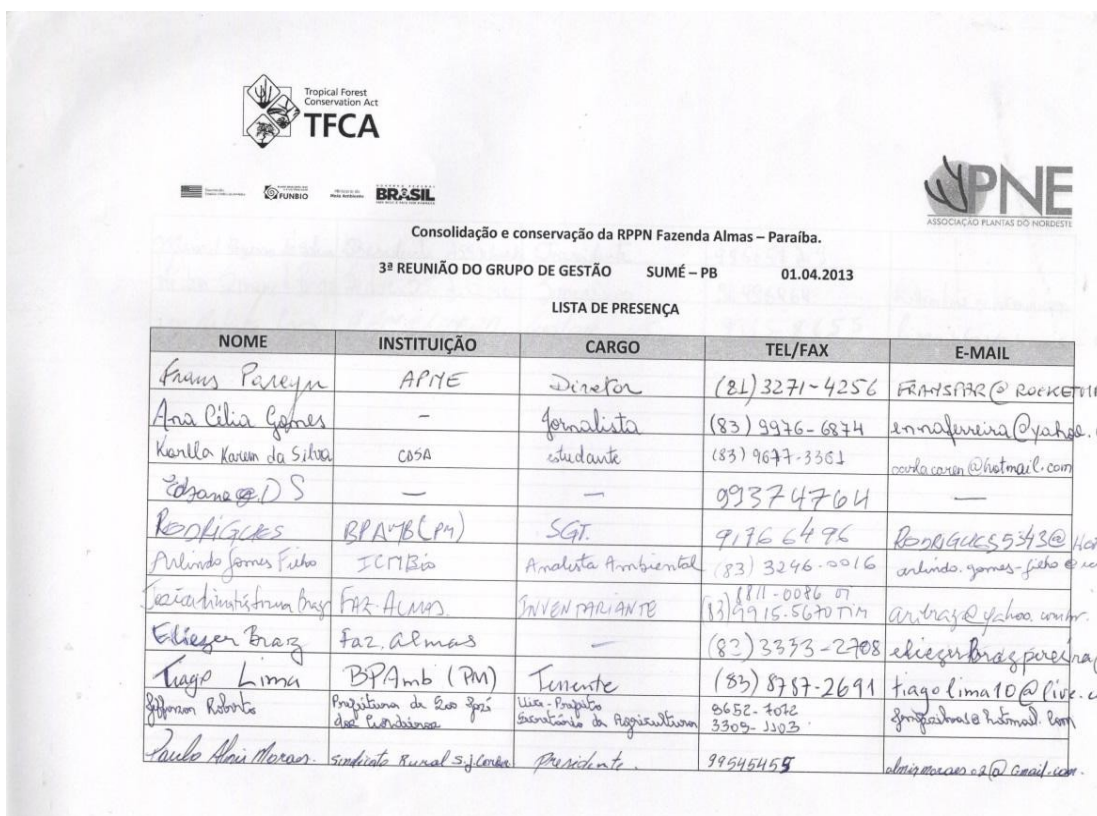 Tropical Forest
Conservation Act
TFCA
FUNBIO
Ministério do
Meio Ambiente
BRASIL
PNE
ASSOCIAÇÃO PLANTAS DO NORDESTE
Consolidação e conservação da RPPN Fazenda Almas – Paraíba.
3ª REUNIÃO DO GRUPO DE GESTÃO SUMÉ – PB 01.04.2013
LISTA DE PRESENÇA
NOME INSTITUIÇÃO CARGO TEL/FAX E-MAIL
Frans Pareyn APNE Diretor (81) 3271-4256
Ana Célia Gomes - Jornalista (83) 9976-6874 ennaferreira@yahoo.
Karlla Karem da Silva estudante (83) 9677-3361 @hotmail.com
D S — — 99374764 —
RODRIGUES BPAMB (PM) SGT. 91766496 RODRIGUES5343@
Arlindo Gomes Filho ICMBio Analista Ambiental (83) 3246-0016 arlindo.gomes-filho@
Braz FAZ. ALMAS. INVENTARIANTE 8811-0086 OI
(83) 9915-5670 TIM
Eliezer Braz Faz. Almas — (83) 3353-2708
Tiago Lima BPAmb (PM) Tenente (83) 8787-2691 tiagolima10@live.
Jefferson Roberto Prefeitura de São José Vice-Prefeito 8652-7072
dos Cordeiros Secretário de Agricultura 3303-1103 hotmail.com
Paulo Moraes. Sindicato Rural S.J. Presidente. 99545455 almirmoraes02@Gmail.com.